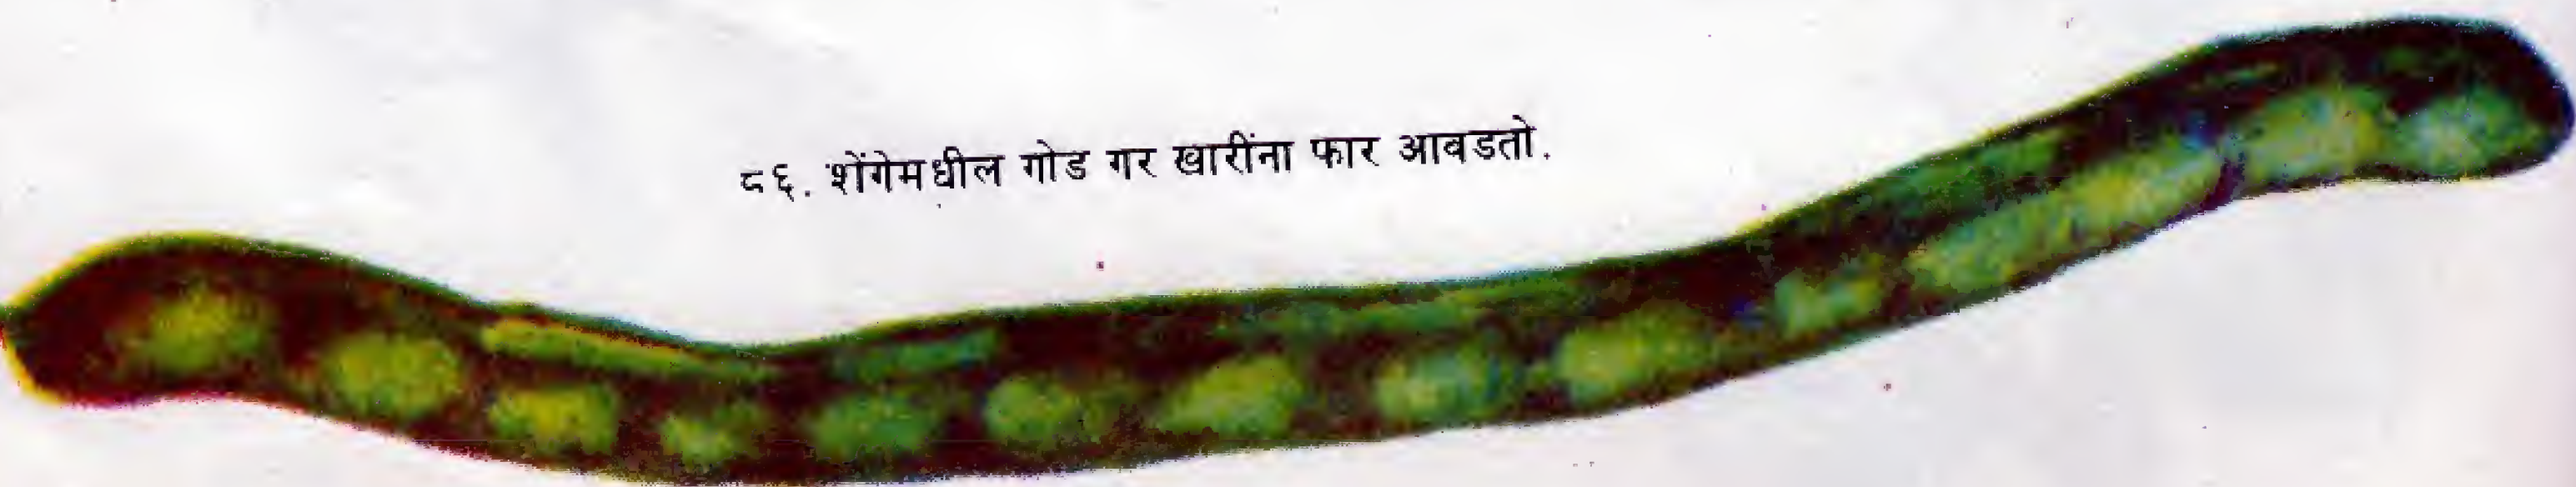 ८६. शेंगेमधील गोड गर खारींना फार आवडतो.